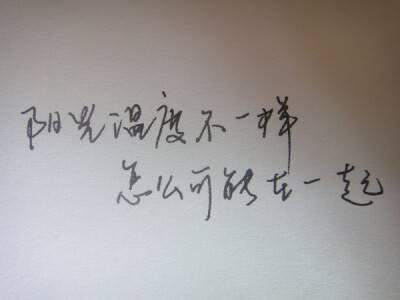 阳光温度不一样
怎么可能在一起